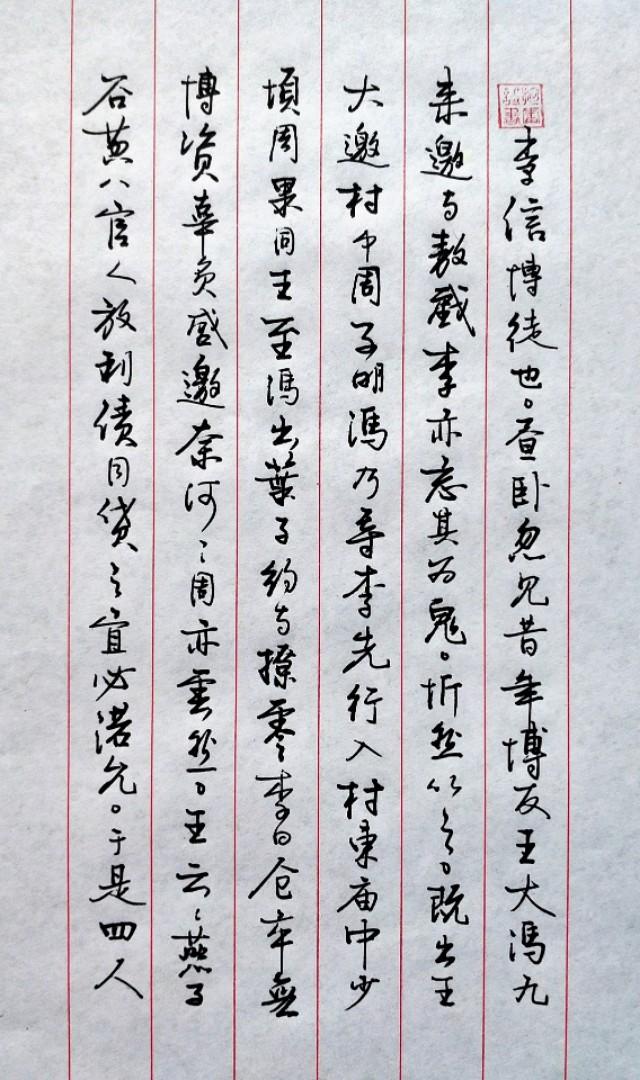 李信博徒也。昼卧忽见昔年博友王大冯九
来邀与敖戲李亦忘其为鬼。忻然从之。既出王
大邀村中周子明馮乃导李先行入村東庙中少
頃周果同王至馮出葉子约与撩零李曰仓卒無
博资辜负盛邀奈何〻周亦雲然。王云〻燕子
谷黄八官人放利债同贷之宜必诺允。于是四人